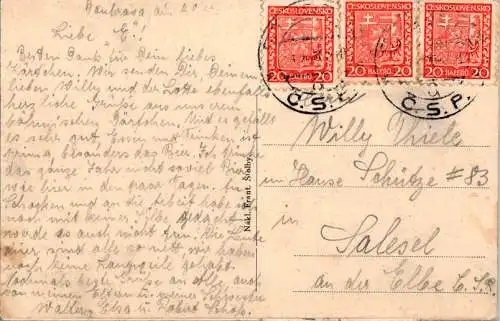 Liebe E.!
Besten Dank für Dein liebes
Kärtchen. Wir senden Dir, Deinem
lieben Willy und der Lotte ebenfalls
herzliche Grüße aus unserem
böhmischen Gärtchen. Mir gefällt es
sehr gut. Essen und Trinken ist
prima, besonders das Bier. Ich
das ganze Jahr nicht soviel Bier
wie hier in den paar Tagen. An
und an die Arbeit habe ich
noch mit keiner Silbe gedacht
werde es auch nicht tun. Die Leute
hier sind alle so nett, wir haben
noch keine Langweile gehabt.
Nochmals beste Grüße an alle, auch
von meinen Eltern u. meiner Schwester
Walter, Elsa u.
ČESKOSLOVENSKO
20 HALÉŘŮ 20
ČESKOSLOVENSKO
20 HALÉŘŮ 20
ČESKOSLOVENSKO
20 HALÉŘŮ 20
Č.S.P.
Č.S.P.
Nákl. Frant.
Willy Thiele
im Hause Schütze #83
in
Salesel
an der Elbe Č.S.R.